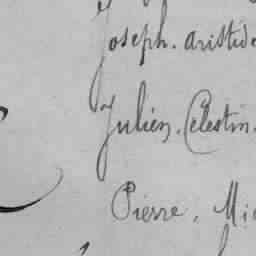 Joseph. aristide
Julien. Célestin.
Pierre. Mic